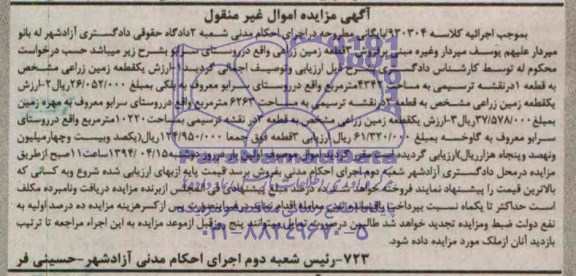 آگهی مزایده اموال غیر منقول
بموجب اجرائیه کلاسه ۹۳۰۳۰۴/بایگانی مطروحه در اجرای احکام مدنی شعبه ۲دادگاه حقوقی دادگستری آزادشهر له بانو
میردار علیهم یوسف میردار وغیره مبنی برفروش ۳قطعه زمین زراعی واقع درروستای سرابو بشرح زیر میباشد حسب درخواست
محکوم له توسط کارشناس دادگستری بشرح ذیل ارزیابی وتوصیف اجمالی گردید.۱-ارزش یکقطعه زمین زراعی مشخص
به قطعه ۱درنقشه ترسیمی به مساحت ۴۳۴۲مترمربع واقع درروستای سرابو معروف به بلکی بمبلغ ۲۶/۰۵۲/۰۰۰ریال۲-ارزش
یکقطعه زمین زراعی مشخص به قطعه ۲در نقشه ترسیمی به مساحت ۶۲۶۳مترمربع واقع درروستای سرابو معروف به مهره زمین
بمبلغ ۳۷/۵۷۸/۰۰۰ریال۳-ارزش یکقطعه زمین زراعی مشخص به قطعه ۳در نقشه ترسیمی به مساحت ۱۰۲۲۰مترمربع واقع درروستای
سرابو معروف به گاوخسه بمبلغ ۶۱/۳۲۰/۰۰۰ ریال ارزیابی ۳قطعه فوق جمعا ۱۲۴/۹۵۰/۰۰۰ ریال(یکصد وبیست وچهارمیلیون
ونهصد وپنجاه هزارریال)ارزیابی گردیده است مقرر گردید اموال موصوف اولیه با امروز دوشنبه ۱۳۹۴/۰۴/۱۵ساعت۱۱صبح ازطریق
مزایده درمحل دادگستری آزادشهر شعبه دوم اجرای احکام مدنی بفروش برسد قیمت پایه ازبهای ارزیابی شده شروع وبه کسانی که
بالاترین قیمت را پیشنهاد نمایند فروخته خواهد شد ده درصد مبلغ پیشنهادی فی المجلس ازبرنده مزایده دریافت ونامبرده مکلف
است حداکثر تا یکماه نسبت بپرداخت باقیمانده ثمن معامله اقدام نماید درغیراینصورت پس ازکسرهزینه مزایده ده درصد اولیه به
نفع دولت ضبط ومزایده تجدید خواهد شد طالبین درصورت تمایل میتوانند پنج روزقبل ازموعد مزایده به این اجراء مراجعه تا ترتیب
بازدید آنان ازملک مورد مزایده داده شود.
۷۲۳-رئیس شعبه دوم اجرای احکام مدنی آزادشهر-حسینی فر
پایگاه اطلاع رسانی مناقصه و مزایده
۰۲۱-۸۸۳۴۹۶۷۰-۵